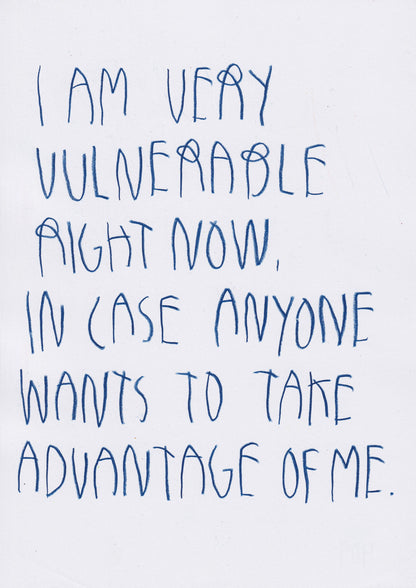 I AM VERY
VULNERABLE
RIGHT NOW,
IN CASE ANYONE
WANTS TO TAKE
ADVANTAGE OF ME.